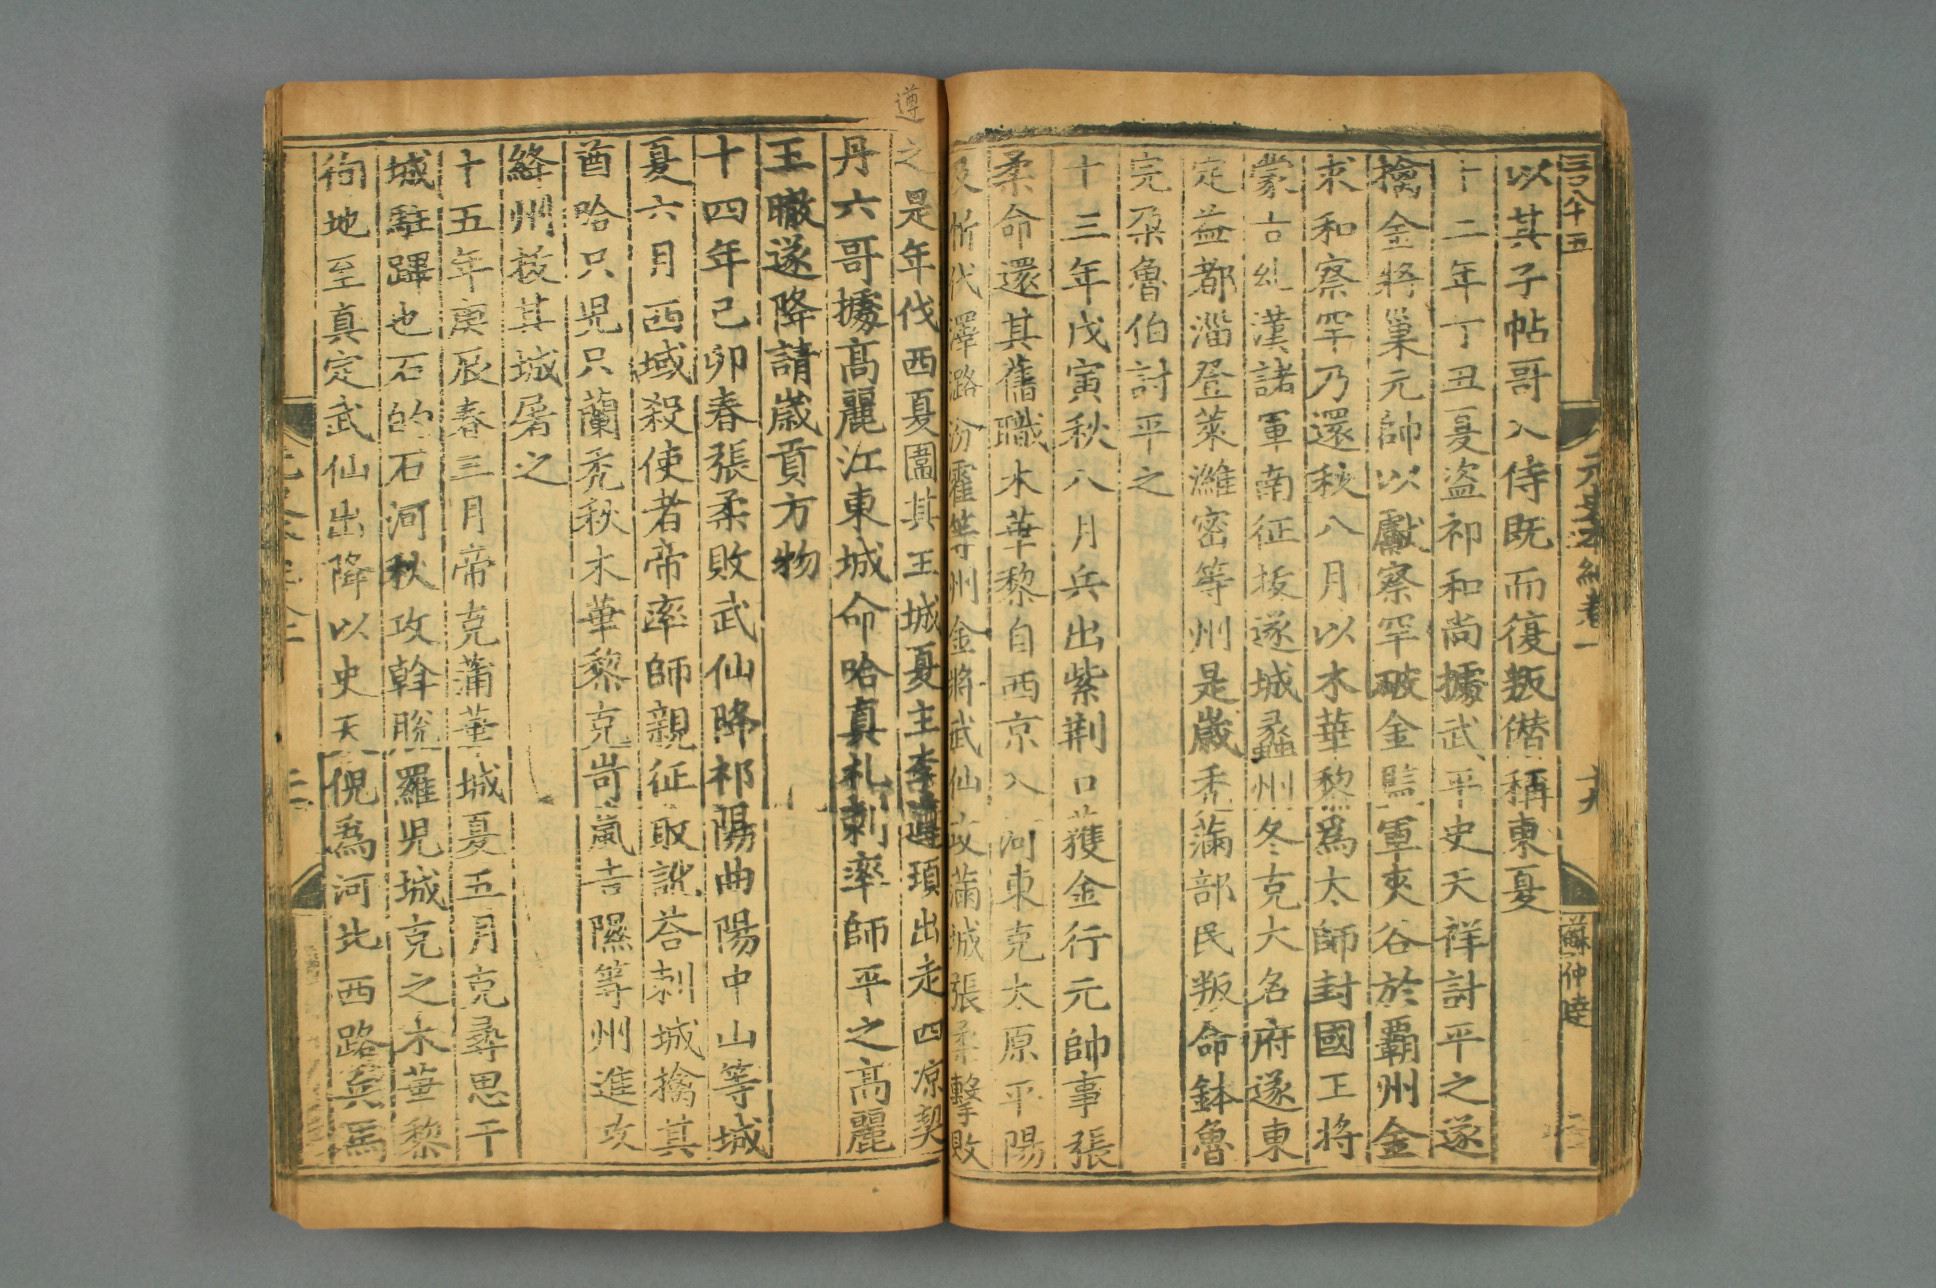 元史本紀卷一
十九
蘇仲
以其子帖哥入侍既而復叛僣稱東夏
十二年丁丑夏盗祁和尚據武平史天祥討平之遂
擒金將巢元帥以獻察罕破金監軍夾谷於覇州金
求和察罕乃還秋八月以木華黎爲太師封國王將
蒙古乣漢諸軍南征拔遂城蠡州冬克大名府遂東
定益都淄登萊濰密等州是歲禿滿部民叛命鉢魯
完朶魯伯討平之
十三年戊寅秋八月兵出紫荆口獲金行元帥事張
柔命還其舊職木華黎自西京入河東克太原平陽
及忻代澤潞汾霍等州金將武仙攻滿城張柔擊敗
遵
之是年伐西夏圍其王城夏主李遵頊出走西凉契
丹六哥據高麗江東城命哈真札剌率師平之高麗
王㬚遂降請歲貢方物
十四年己卯春張柔敗武仙降祁陽曲陽中山等城
夏六月西域殺使者帝率師親征取訛荅剌城擒其
酋哈只児只蘭禿秋木華黎克岢嵐吉隰等州進攻
絳州拔其城屠之
十五年庚辰春三月帝克蒲華城夏五月克尋思干
城駐蹕也石的石河秋攻斡脫羅児城克之木華黎
徇地至真定武仙出降以史天倪爲河北西路兵馬